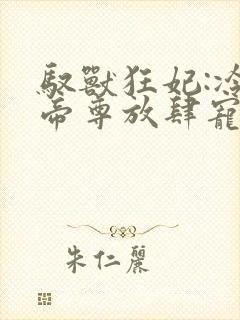 馭獸狂妃:冷
帝尊放肆寵
朱仁麗